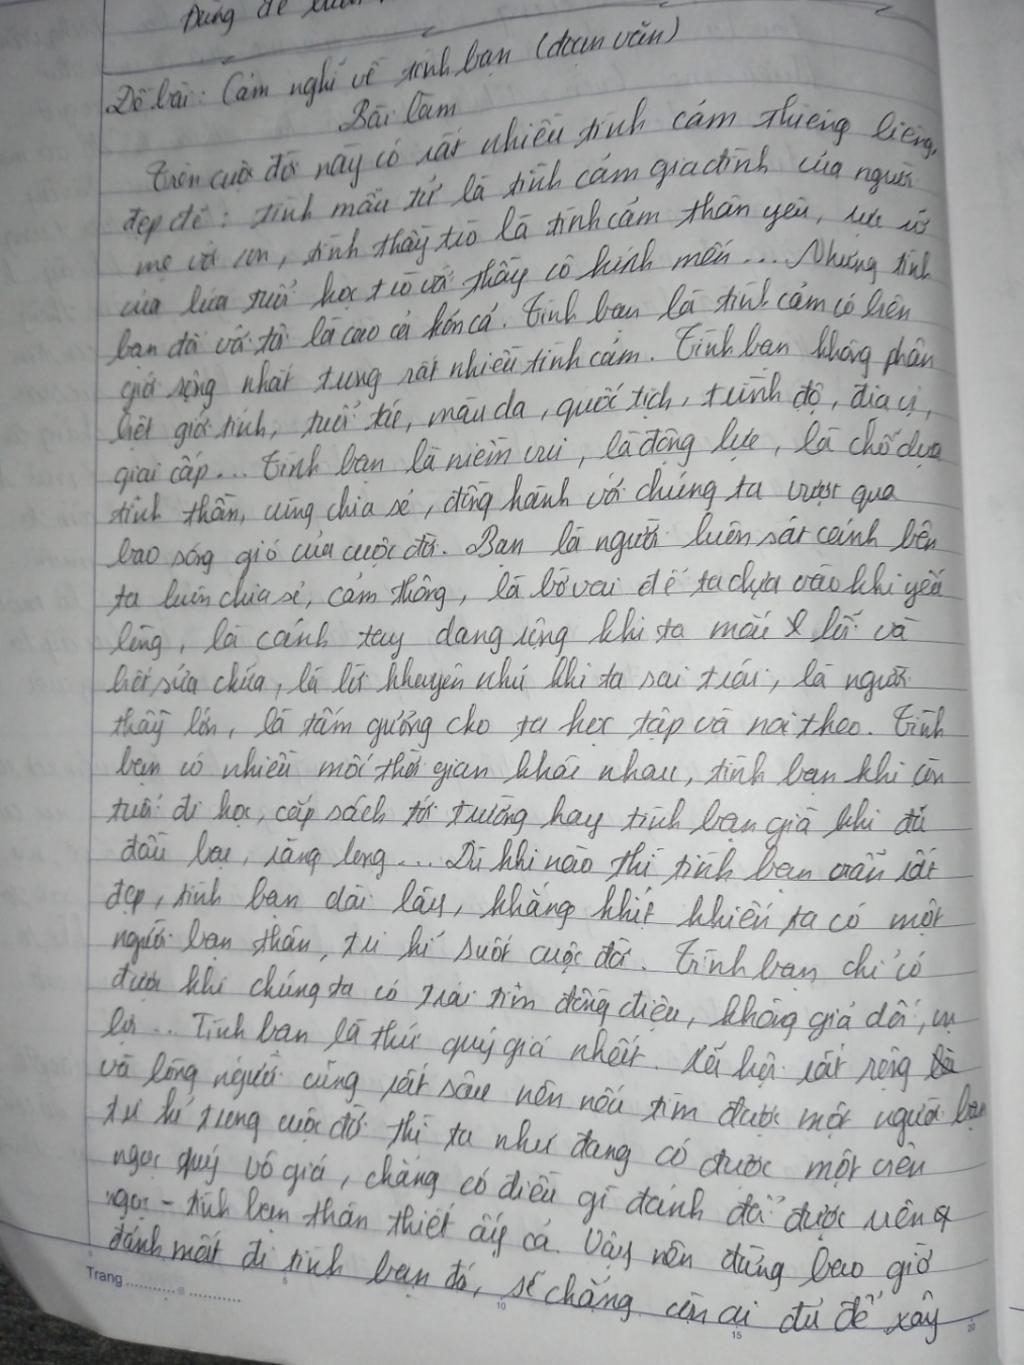 Đừng để
Đề bài: Cảm nghĩ về tình bạn (đoạn văn)
Bài làm
Trên cuộc đời này có rất nhiều tình cảm thiêng liêng,
đẹp đẽ: tình mẫu tử là tình cảm gia đình của người
mẹ với con, tình thầy trò là tình cảm thân yêu,
của lứa tuổi học trò với thầy cô kính mến... Nhưng tình
bạn đối với tôi là cao cả hơn cả. Tình bạn là tình cảm có biên
giới rộng nhất trong rất nhiều tình cảm. Tình bạn không phân
biệt giới tính, tuổi tác, màu da, quốc tịch, trình độ, địa vị,
giai cấp... Tình bạn là niềm vui, là động lực, là chỗ dựa
tinh thần, cùng chia sẻ, đồng hành với chúng ta vượt qua
bao sóng gió của cuộc đời. Bạn là người luôn sát cánh bên
ta luôn chia sẻ, cảm thông, là bờ vai để ta dựa vào khi yếu
lòng, là cánh tay dang rộng khi ta mắc lỗi và
biết sửa chữa, là lời khuyên nhủ khi ta sai trái, là người
thầy lớn, là tấm gương cho ta học tập và noi theo. Tình
bạn có nhiều mốc thời gian khác nhau, tình bạn khi còn
tuổi đi học, cắp sách tới trường hay tình bạn già khi đã
đầu bạc, răng long... Dù khi nào thì tình bạn vẫn rất
đẹp, tình bạn dài lâu, khăng khít khiến ta có một
người bạn thân, tri kỉ suốt cuộc đời. Tình bạn chỉ có
được khi chúng ta có trái tim đồng điệu, không giả dối, vụ
lợi... Tình bạn là thứ quý giá nhất. Xã hội rất rộng
và lòng người cũng rất sâu nên nếu tìm được một người bạn
tri kỉ trong cuộc đời thì ta như đang có được một viên
ngọc quý vô giá, chẳng có điều gì đánh đổi được viên
ngọc - tình bạn thân thiết ấy cả. Vậy nên đừng bao giờ
đánh mất đi tình bạn đó, sẽ chẳng còn ai đủ để xây
Trang
5
10
15
20